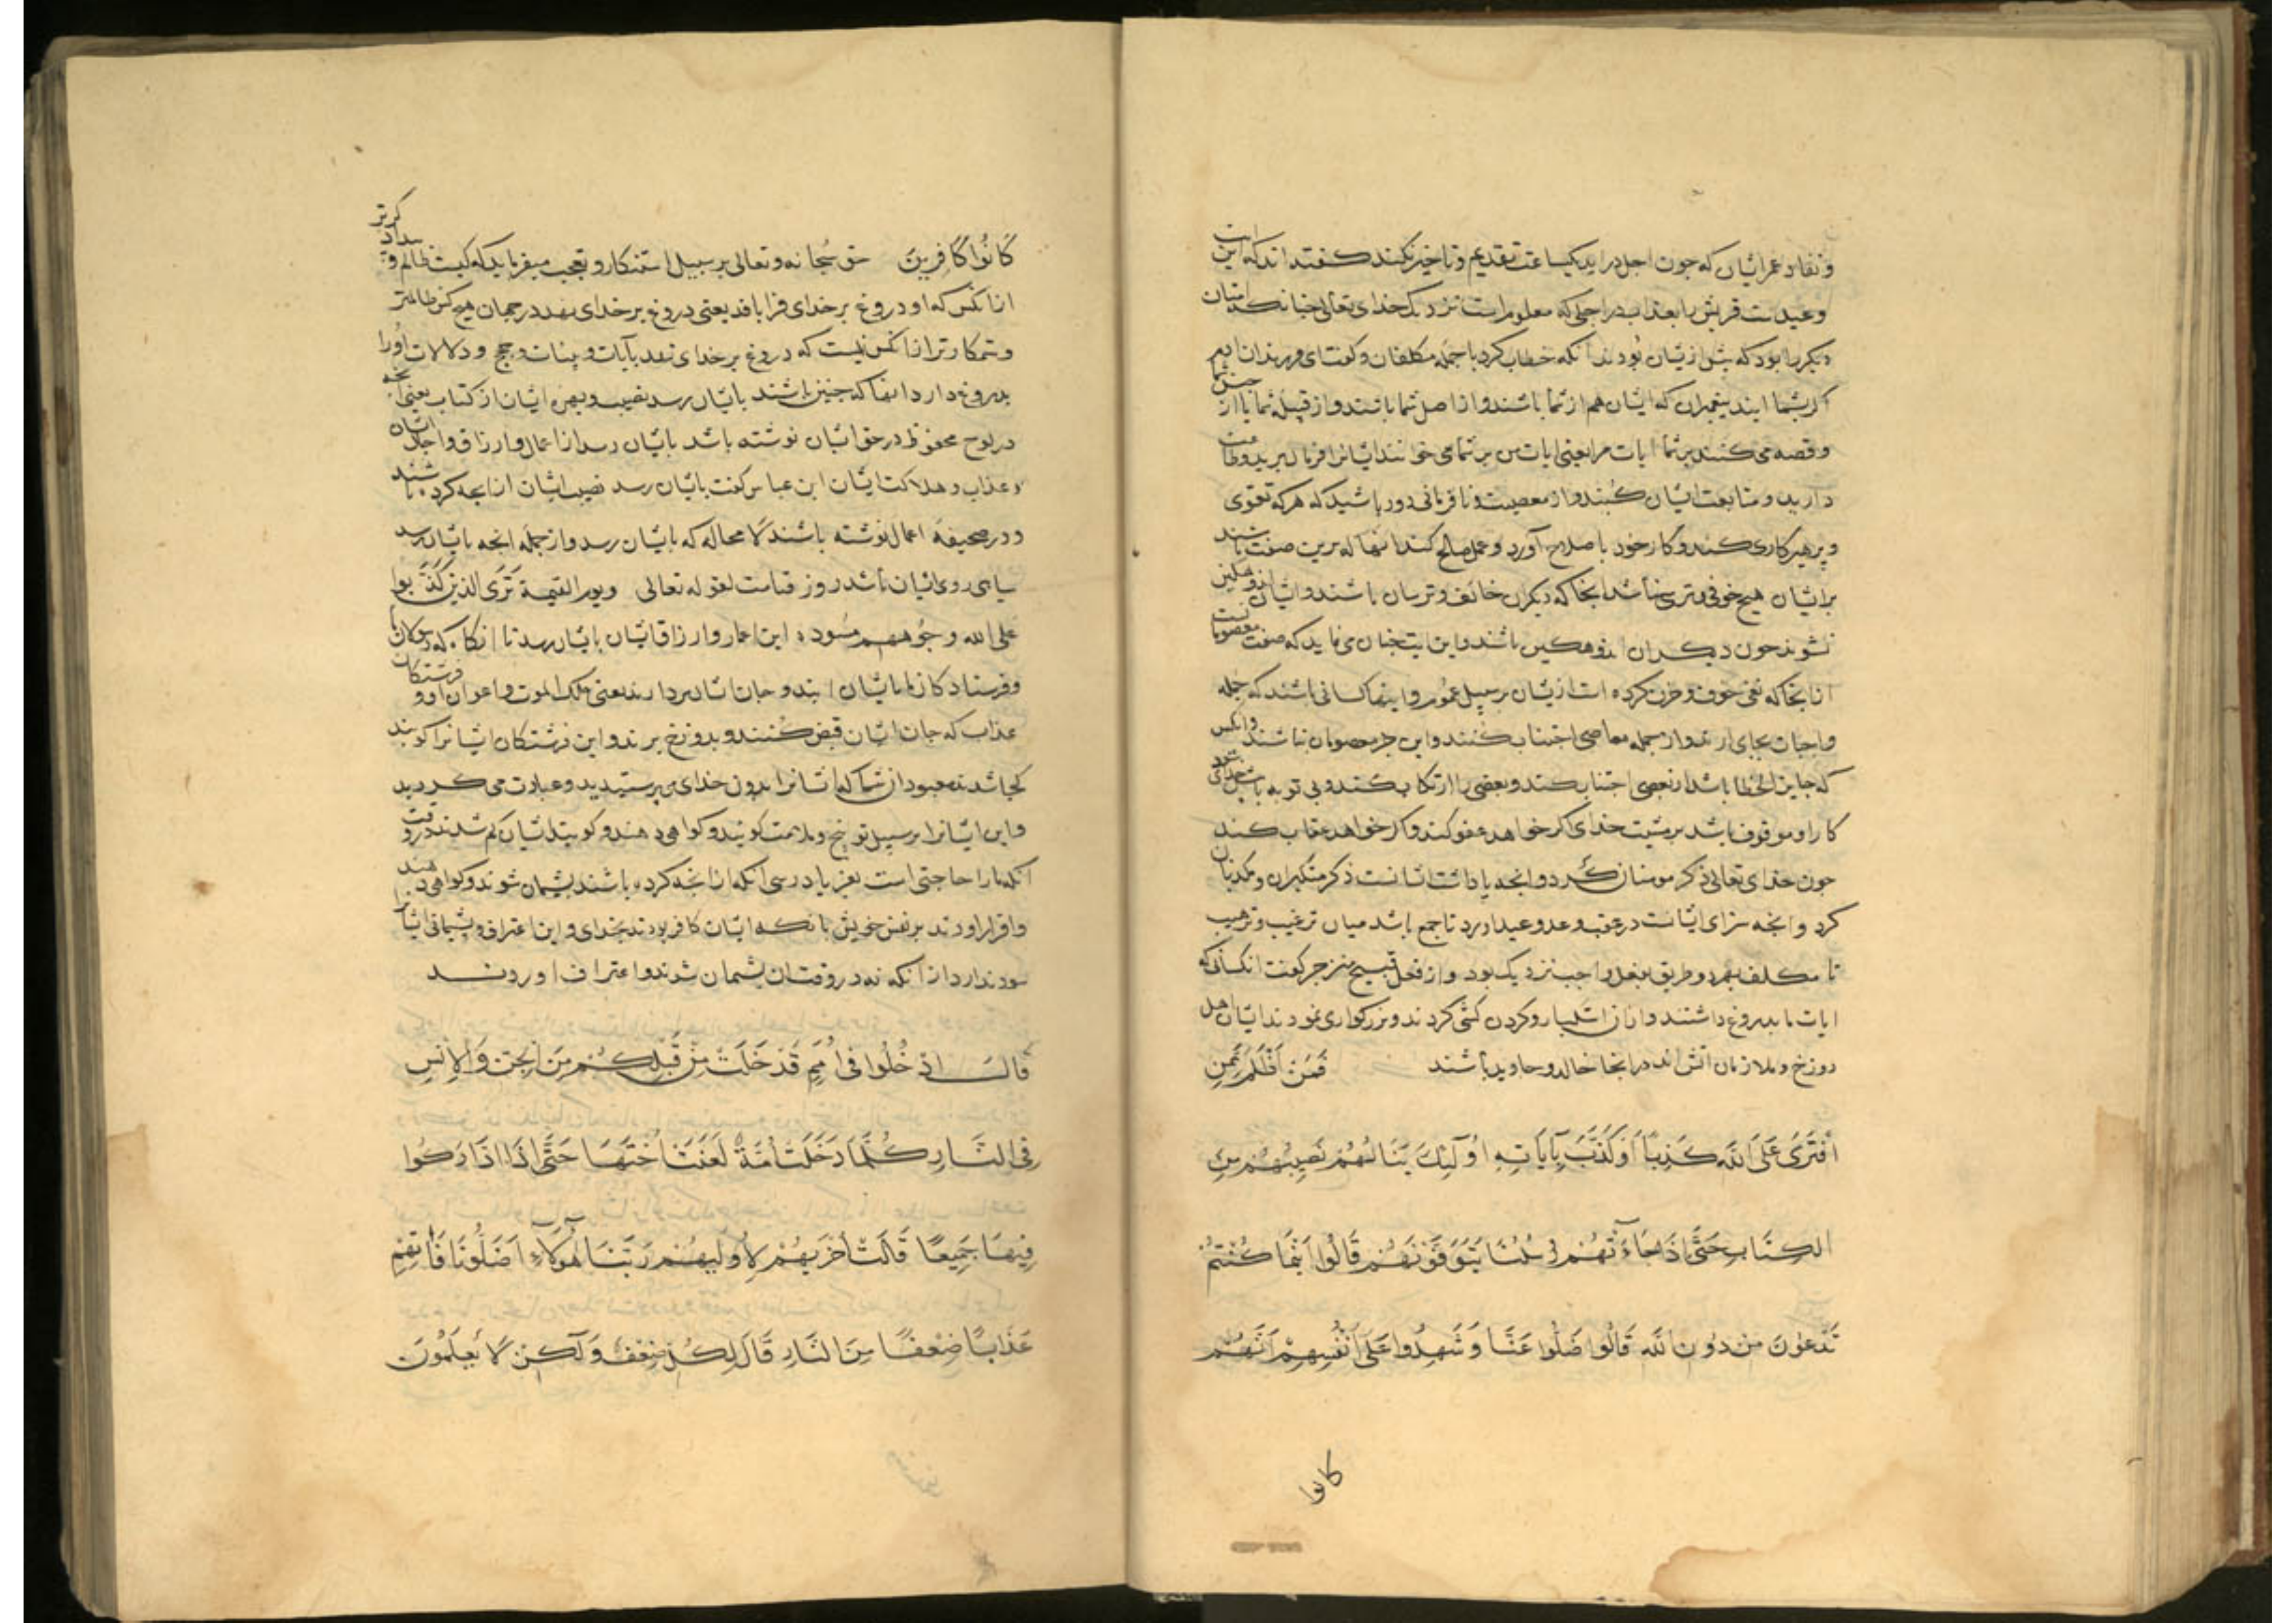 و نفاد عمر ایشان که چون اجل دراید یکساعت تقدیم و تاخیر نکند گفته‌اند که این
وعیدست قریش را بعذاب در اجلی که معلوم است نزدیک خدای تعالی چنانک امتان
دیکر را بود که پیش ازیشان بودند انکه خطاب کرد با جمله مکلفان و گفت ای فرزندان ادم
اکر بشما ایند پیغمبران که ایشان هم از شما باشند و از اصل شما باشند و از قبیله شما یا از جنس شما
و قصه می کنند بر شما ایات مرا یعنی ایات من بر شما می خوانند ایشانرا فرمان برید و طاعت
دارید و متابعت ایشان کنید و از معصیت و نافرمانی دور باشید که هر که تقوی
و پرهیزکاری کند و کار خود باصلاح آورد و عمل صالح کند انها که برین صفت باشند
بر ایشان هیچ خوفی و ترسی نباشد انجا که دیکران خائف و ترسان باشند و ایشان اندوهکین
نشوند چون دیکران اندوهکین باشند و این ایت چنان می نماید که صفت معصومانست
از انجا که نفی خوف و حزن کرده است ازیشان بر سبیل عموم و اینها کسانی باشند که جمله
واجبات بجای ارند و از جمله معاصی اجتناب کنند و این جز معصومان نباشند و انکس
که جایز الخطا باشد از بعضی اجتناب کند و بعضی را ارتکاب کند و بی توبه با پیش خدای شود
کار او موقوف باشد بر مشیت خدای اکر خواهد عفو کند و اکر خواهد عقاب کند
چون خدای تعالی ذکر مومنان کرد و انچه پاداشت ایشانست ذکر متکبران و مکذبان
کرد و انچه سزای ایشانست در عقب وعد وعید اورد تا جمع باشد میان ترغیب و ترهیب
تا مکلف بهر دو طریق بفعل واجب نزدیک بود و از فعل قبیح منزجر گفت انکسانی که
ایات ما بدروغ داشتند و از ان استکبار و کردن کشی کردند و بزرکواری نمودند ایشان اهل
دوزخ و ملازمان اتش اند در انجا خالد و جاوید باشند فَمَنْ أَظْلَمُ مِمَّنِ
افْتَرَىٰ عَلَى اللَّهِ كَذِبًا أَوْ كَذَّبَ بِآيَاتِهِ أُولَٰئِكَ يَنَالُهُمْ نَصِيبُهُمْ مِنَ
الْكِتَابِ حَتَّىٰ إِذَا جَاءَتْهُمْ رُسُلُنَا يَتَوَفَّوْنَهُمْ قَالُوا أَيْنَمَا كُنْتُمْ
تَدْعُونَ مِنْ دُونِ اللَّهِ قَالُوا ضَلُّوا عَنَّا وَشَهِدُوا عَلَىٰ أَنْفُسِهِمْ أَنَّهُمْ
کانوا
كَانُوا كَافِرِينَ حق سُبحانه و تعالی بر سبیل استنکار و تعجب میفرماید که کیست ظالم و بیدادکرتر
از انکس که او دروغ بر خدای فرا بافد یعنی دروغ بر خدای نهد در جهان هیچ کس ظالمتر
و ستمکارتر از انکس نیست که دروغ بر خدای نهد بآیات و بینات و حجج و دلالات اورا
بدروغ دارد انها که چنین باشند بایشان رسد نصیب و بهره ایشان از کتاب یعنی انچه
در لوح محفوظ در حق ایشان نوشته باشد بایشان رسد از اعمال و ارزاق و اجال ایشان
و عذاب و هلاکت ایشان ابن عباس گفت بایشان رسد نصیب ایشان از انچه کرده باشند
و در صحیفه اعمال نوشته باشند لا محاله که بایشان رسد و از جمله انچه بایشان رسد
سیاهی روی ایشان باشد روز قیامت لقوله تعالی ویوم القیمة تَرَى الذین كَذَبوا
علی الله وجُوههم مسْوده این اعمار و ارزاق ایشان بایشان رسد تا انکاه که رسولان ما
و فرستادکان ما بایشان ایند و جان ایشان بردارند یعنی ملک الموت و اعوان او و فرشتکان
عذاب که جان ایشان قبض کنند و بدوزخ برند و این فرشتکان ایشانرا کویند
کجا شدند معبودان شما که ایشانرا بدون خدای می پرستیدید و عبادت می کردید
و این ایشانرا بر سبیل توبیخ و ملامت کویند و کواهی دهند و کویند ایشان کم شدند در وقت
انکه ما را حاجتی است بفریاد رسی انکه از انچه کرده باشند پشیمان شوند و کواهی دهند
و اقرار اورند بر نفس خویش بانکه ایشان کافر بودند بخدای و این اعتراف و پشیمانی ایشانرا
سود ندارد از انکه نه در وقت ان پشیمان شوند و اعتراف اوردند
قَالَ ادْخُلُوا فِي أُمَمٍ قَدْ خَلَتْ مِنْ قَبْلِكُمْ مِنَ الْجِنِّ وَالْإِنْسِ
فِي النَّارِ كُلَّمَا دَخَلَتْ أُمَّةٌ لَعَنَتْ أُخْتَهَا حَتَّىٰ إِذَا ادَّارَكُوا
فِيهَا جَمِيعًا قَالَتْ أُخْرَيهُمْ لِأُولَيهُمْ رَبَّنَا هَٰؤُلَاءِ أَضَلُّونَا فَآتِهِمْ
عَذَابًا ضِعْفًا مِنَ النَّارِ قَالَ لِكُلٍّ ضِعْفٌ وَلَٰكِنْ لَا يَعْلَمُونَ